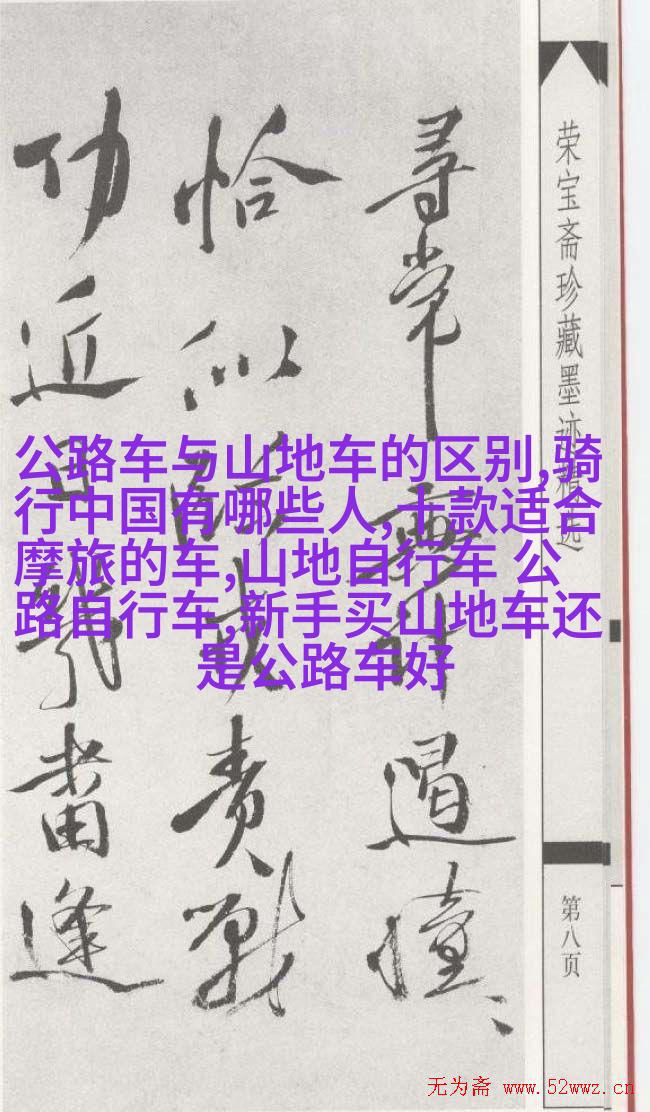 公路车与山地车的区别,骑
行中国有哪些人,十款适合
摩旅的车,山地自行车 公
路自行车,新手买山地车还
是公路车好
荣宝斋珍藏墨迹精选
第八页
尋常
恰似 責戰
功近日 當逢
无为斋 www.52wwz.cn